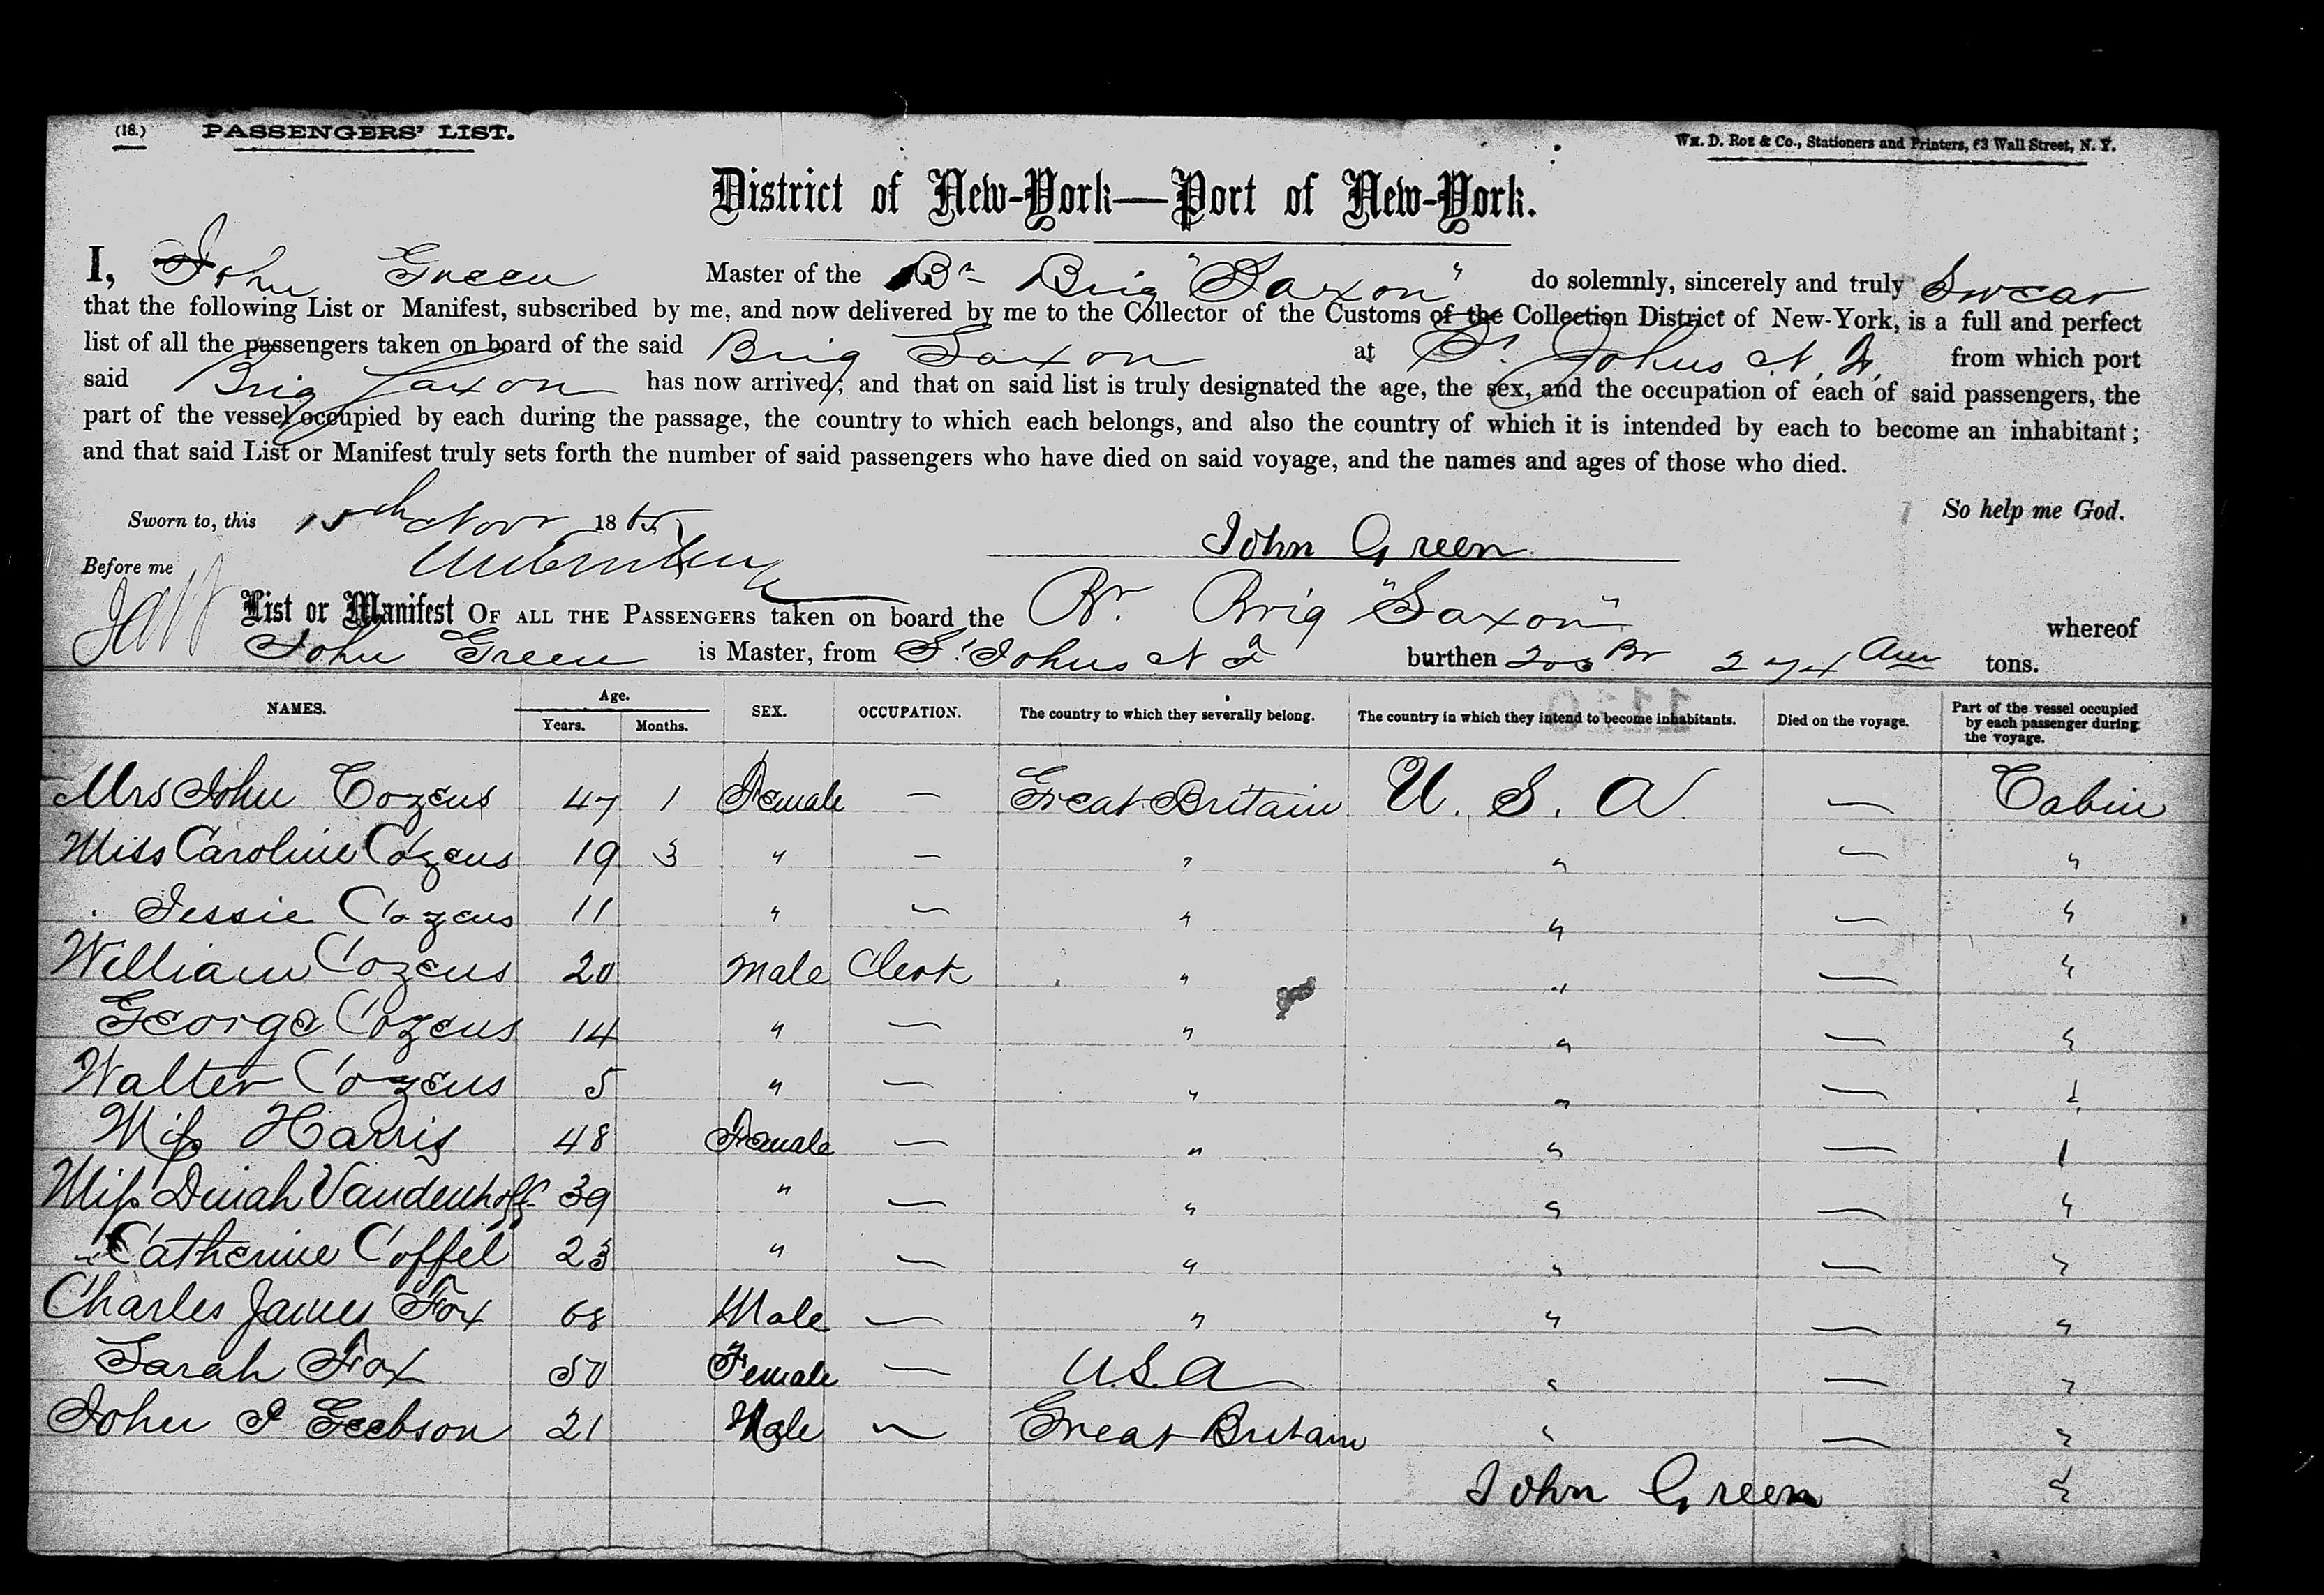 (18.) PASSENGERS' LIST. Wm. D. Roe & Co., Stationers and Printers, 63 Wall Street, N. Y.
District of New-York—Port of New-York.
I, John Green Master of the Br Brig "Saxon" do solemnly, sincerely and truly Swear
that the following List or Manifest, subscribed by me, and now delivered by me to the Collector of the Customs of the Collection District of New-York, is a full and perfect
list of all the passengers taken on board of the said Brig Saxon at St. Johns N. F. from which port
said Brig Saxon has now arrived; and that on said list is truly designated the age, the sex, and the occupation of each of said passengers, the
part of the vessel occupied by each during the passage, the country to which each belongs, and also the country of which it is intended by each to become an inhabitant;
and that said List or Manifest truly sets forth the number of said passengers who have died on said voyage, and the names and ages of those who died.
So help me God.
Sworn to, this 15th Novr 1865
John Green
Before me
List or Manifest OF ALL THE PASSENGERS taken on board the Br. Brig "Saxon" whereof
John Green is Master, from St. Johns N F burthen 200 Br 274 Am tons.
NAMES. Age. Years. Months. SEX. OCCUPATION. The country to which they severally belong. The country in which they intend to become inhabitants. Died on the voyage. Part of the vessel occupied by each passenger during the voyage.
Mrs John Cozens 47 1 Female — Great Britain U. S. A — Cabin
Miss Caroline Cozens 19 3 " — " " — "
" Jessie Cozens 11 " — " " — "
William Cozens 20 Male Clerk " " — "
George Cozens 14 " — " " — "
Walter Cozens 5 " — " " — "
Miss Harris 48 Female — " " — "
Miss Dinah Vandenhoff 39 " — " " — "
" Catherine Coffel 23 " — " " — "
Charles James Fox 68 Male — " " — "
Sarah Fox 50 Female — U.S.A " — "
John Geebson 21 Male — Great Britain " — "
John Green "